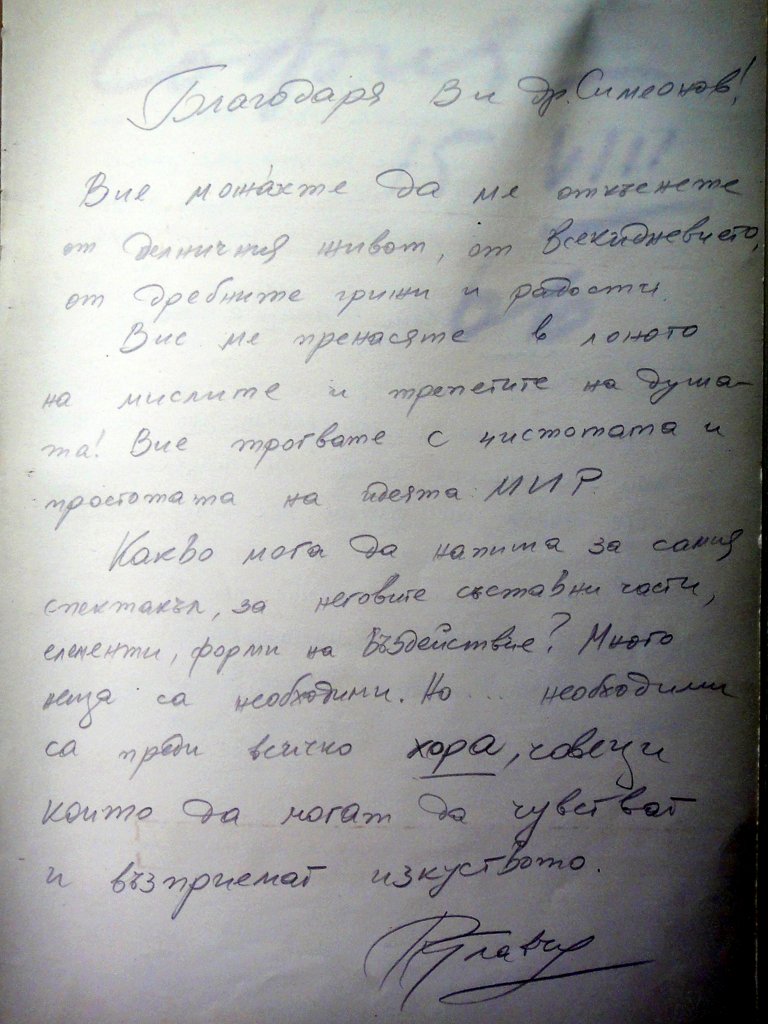 Благодаря Ви др. Симеонов!
Вие можахте да ме откъснете
от делничния живот, от всекидневието,
от дребните грижи и радости.
Вие ме пренасяте в лоното
на мислите и трепетите на душа-
та! Вие трогвате с чистотата и
простотата на идеята МИР.
Какво мога да напиша за самия
спектакъл, за неговите съставни части,
елементи, форми на въздействие? Много
неща са необходими. Но ... необходими
са преди всичко хора, човеци
които да могат да чувстват
и възприемат изкуството.